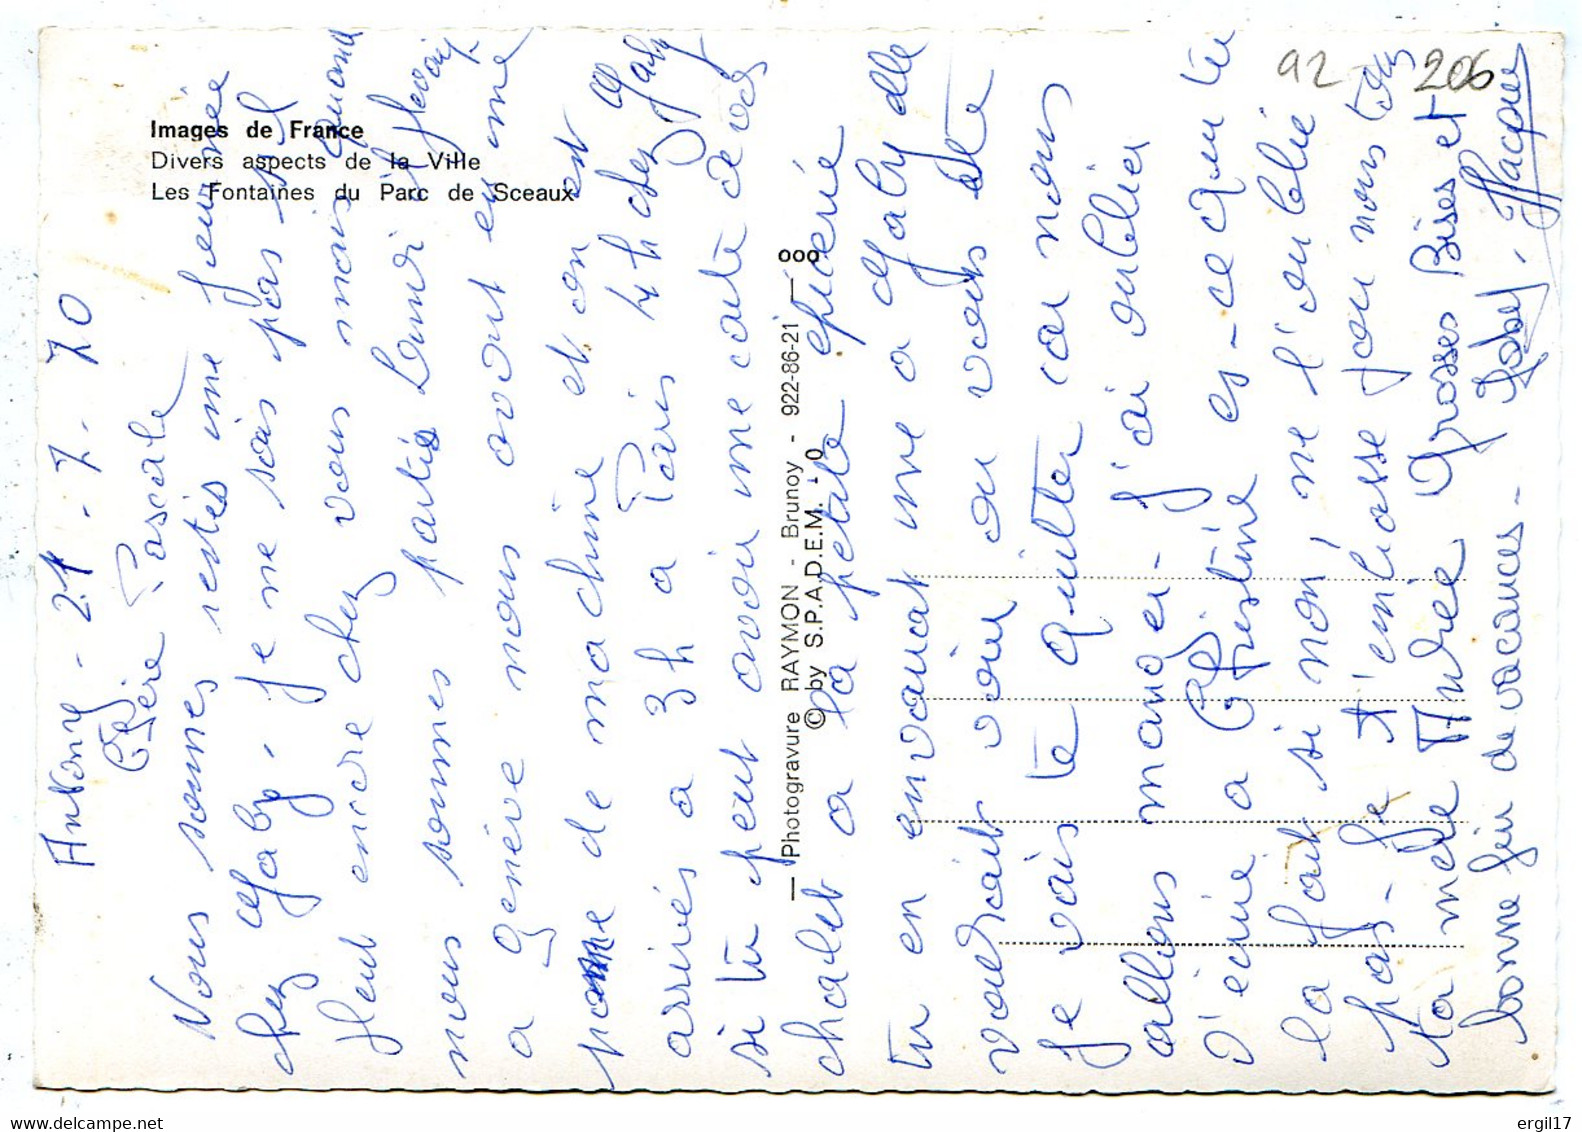 Images de France
Divers aspects de la Ville
Les Fontaines du Parc de Sceaux
92 206
— Photogravure RAYMON - Brunoy - 922-86-21 —
© by S.P.A.D.E.M. - 0
Antony - 21 - 7 - 70
Chère Pascale
Nous sommes restés une journée
chez Gaby, je ne sais pas s'il
pleut encore chez vous mais quand
nous sommes partis Lundi il pleuvait
a Genève nous avons eu une
panne de machine et on est
arrivés a 3h a Paris 4h chez Gaby
si tu peut avoir une carte de vos
chalet a la petite épicerie
tu en envairait une a Gaby elle
voudrait voir ou vous ete
Je vais te quitter car nous
allons manger - J'ai oublier
d'écrire a Christine es-ce que tu
la fait si non, ne l'oublie
pas - Je t'embrasse pour nous tous
ta mere Andrée Grosses Bises et
bonne fin de vacances - Jacques